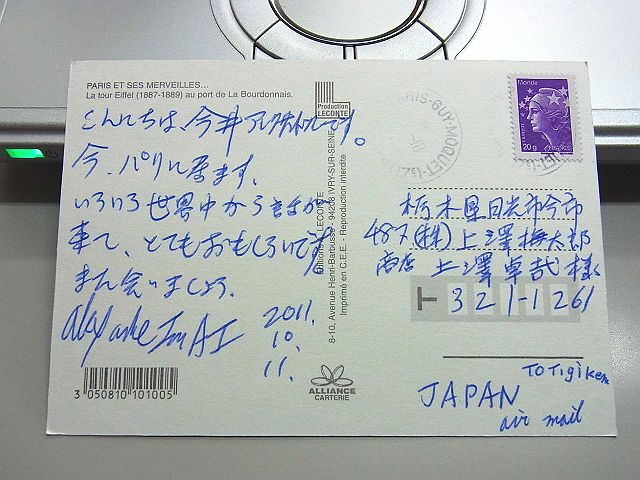 PARIS ET SES MERVEILLES...
La tour Eiffel (1887-1889) au port de La Bourdonnais.
こんにちは、今井アレクサンドルです。
今、パリに居ます。
いろいろ世界中から客が
来て、とてもおもしろいです。
また会いましょう。
2011.
10.
11.
3 050810 101005
Production
LECONTE
Editions LECONTE
8-10, Avenue Henri-Barbusse - 94208 IVRY-SUR-SEINE
Imprimé en C.E.E. - Reproduction interdite
ALLIANCE
CARTERIE
PARIS-GUY-MOQUET
Monde
20g
France
栃木県日光市今市
487(株)上澤梅太郎
商店 上澤卓哉様
〒321-1261
To Tigiken
JAPAN
air mail